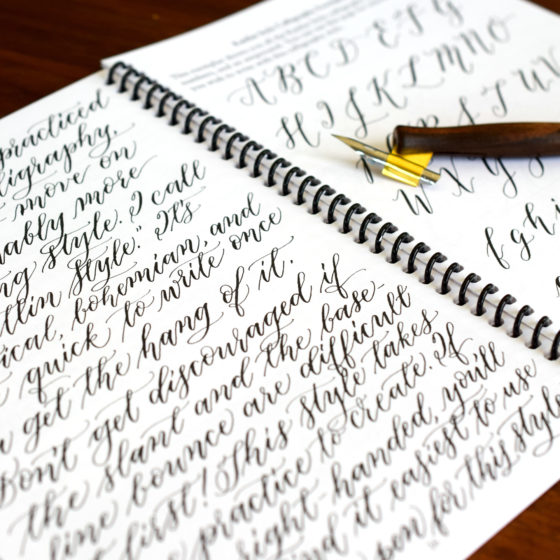 practiced
move on
more
style. I call
Style." It's
bohemian, and
quick to write once
get the hang of it.
Don't get discouraged if
the slant and the base-
line bounce are difficult
first! This style takes
practice to create. If
right handed, you'll
it easiest to use
for this style
A B C D E F G
H I J K L M N O
S T U
W X Y
f g h i